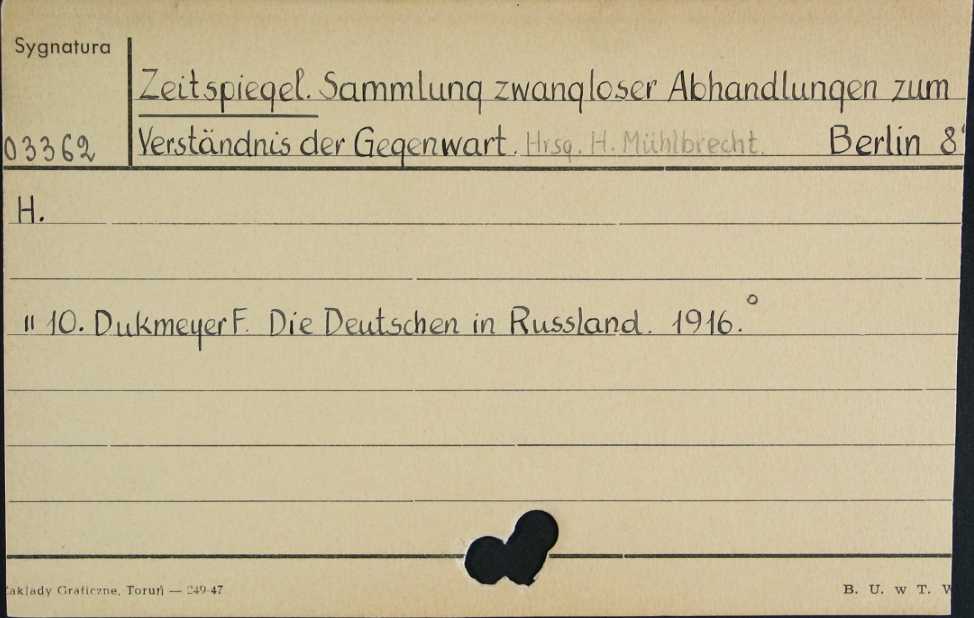 Sygnatura
Zeitspiegel. Sammlung zwangloser Abhandlungen zum
03362 Verständnis der Gegenwart. Hrsg. H. Mühlbrecht. Berlin 8°
H.
" 10. Dukmeyer F. Die Deutschen in Russland. 1916.°
Zakłady Graficzne, Toruń — 249-47 B. U. w T. W